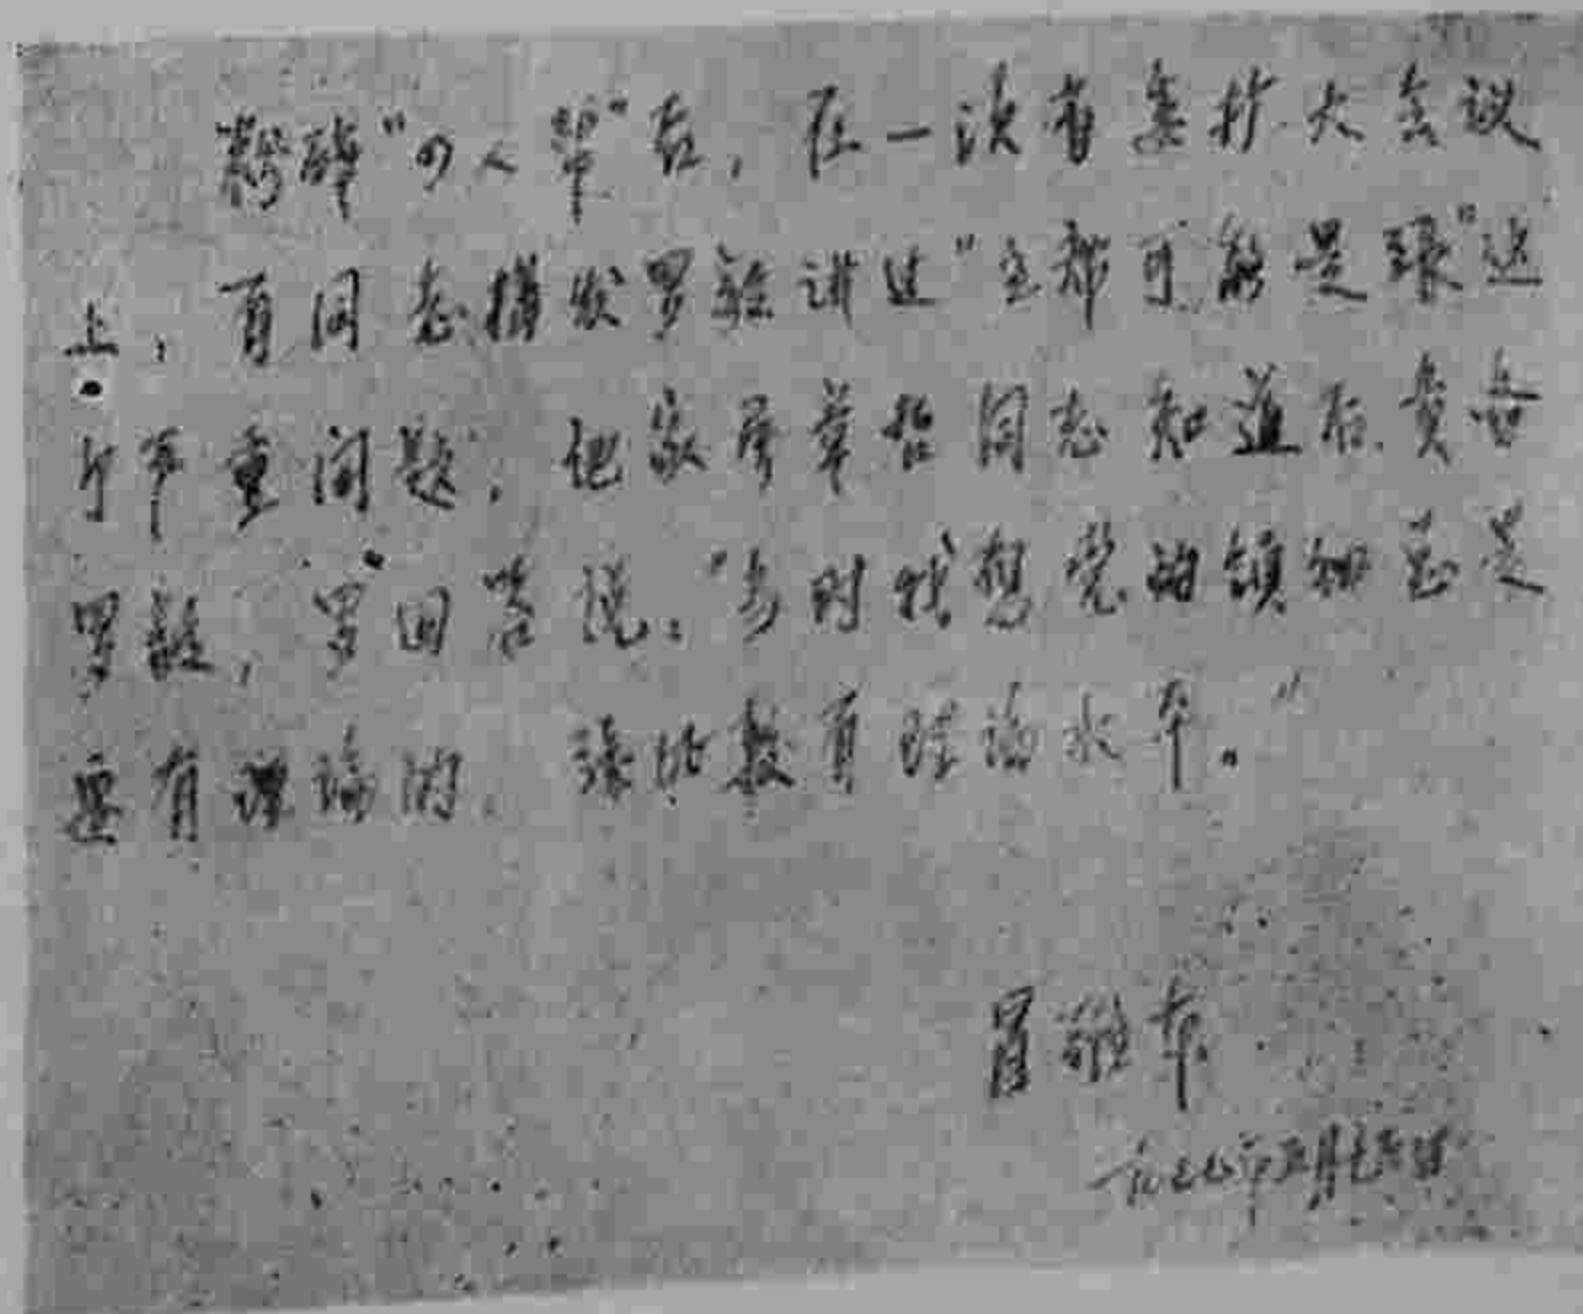 粉碎"四人帮"后，在一次省委扩大会议
上，有同志揭发罗毅讲过"主席可能是跟"这
个严重问题，他家属草哲同志知道后责
罗毅，罗回答说："当时我想党的领袖总是
要有理论的，张比较有理论水平。"
冒敬东
一九七七年五月